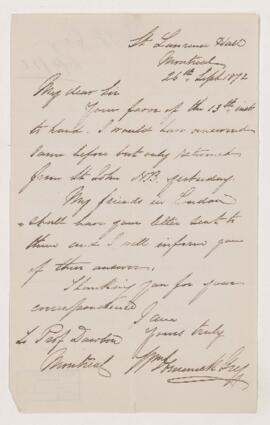 St Lawrence Hall
Montreal
26th Sept 1872
My dear Sir
Your favor of the 13th inst
to hand. I would have answered
same before but only returned
from St John NB. yesterday.
My friends in London
shall have your letter sent to
them and I will inform you
of their answer.
Thanking you for your
correspondence
I am
Yours truly
Wm
To Prof Dawson
Montreal